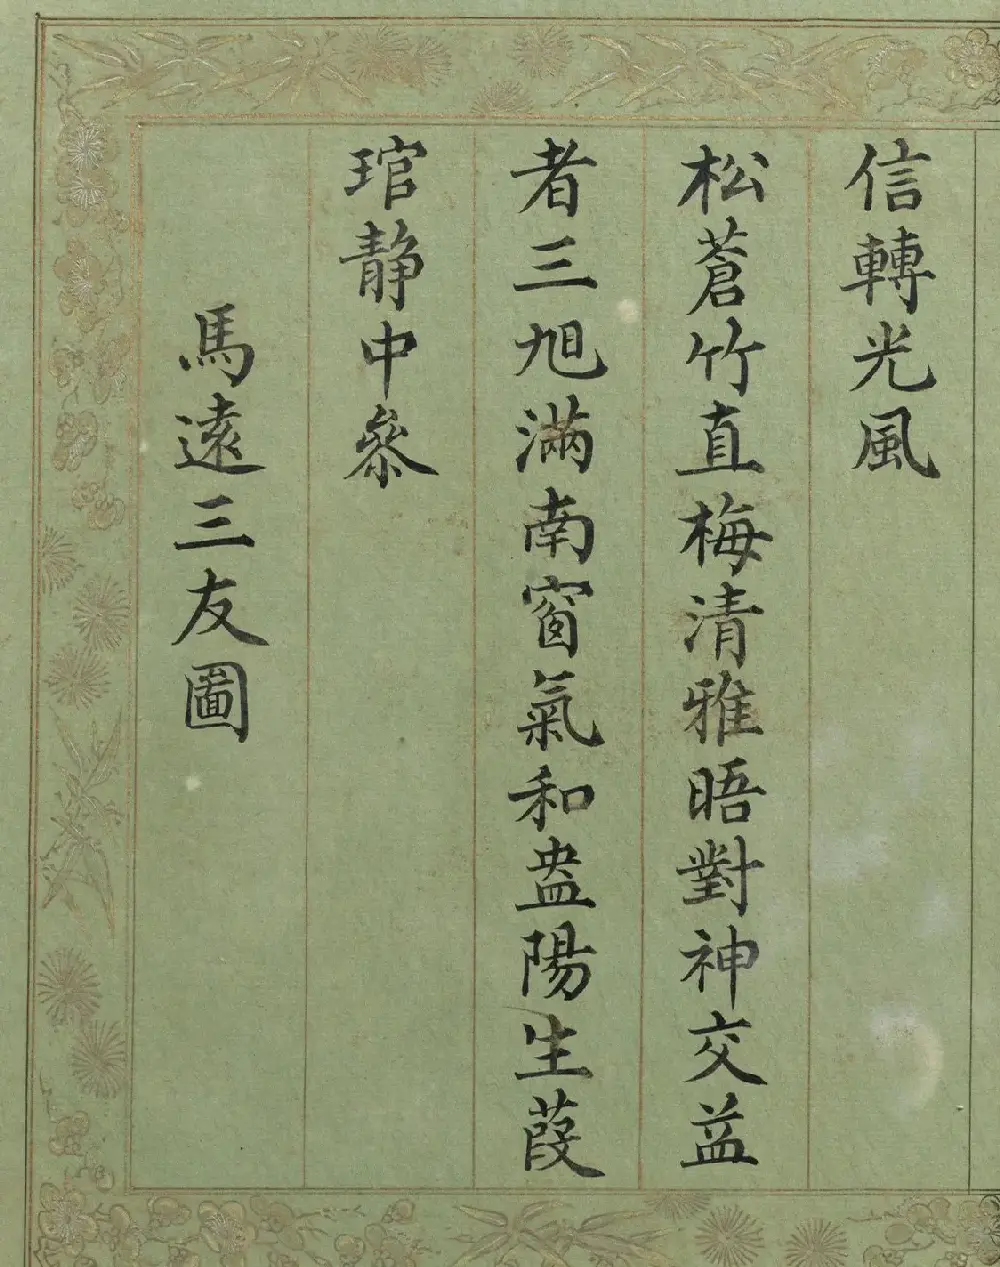 信轉光風
松蒼竹直梅清雅晤對神交益
者三旭滿南窗氣和盎陽生葭
琯靜中參
馬遠三友圖